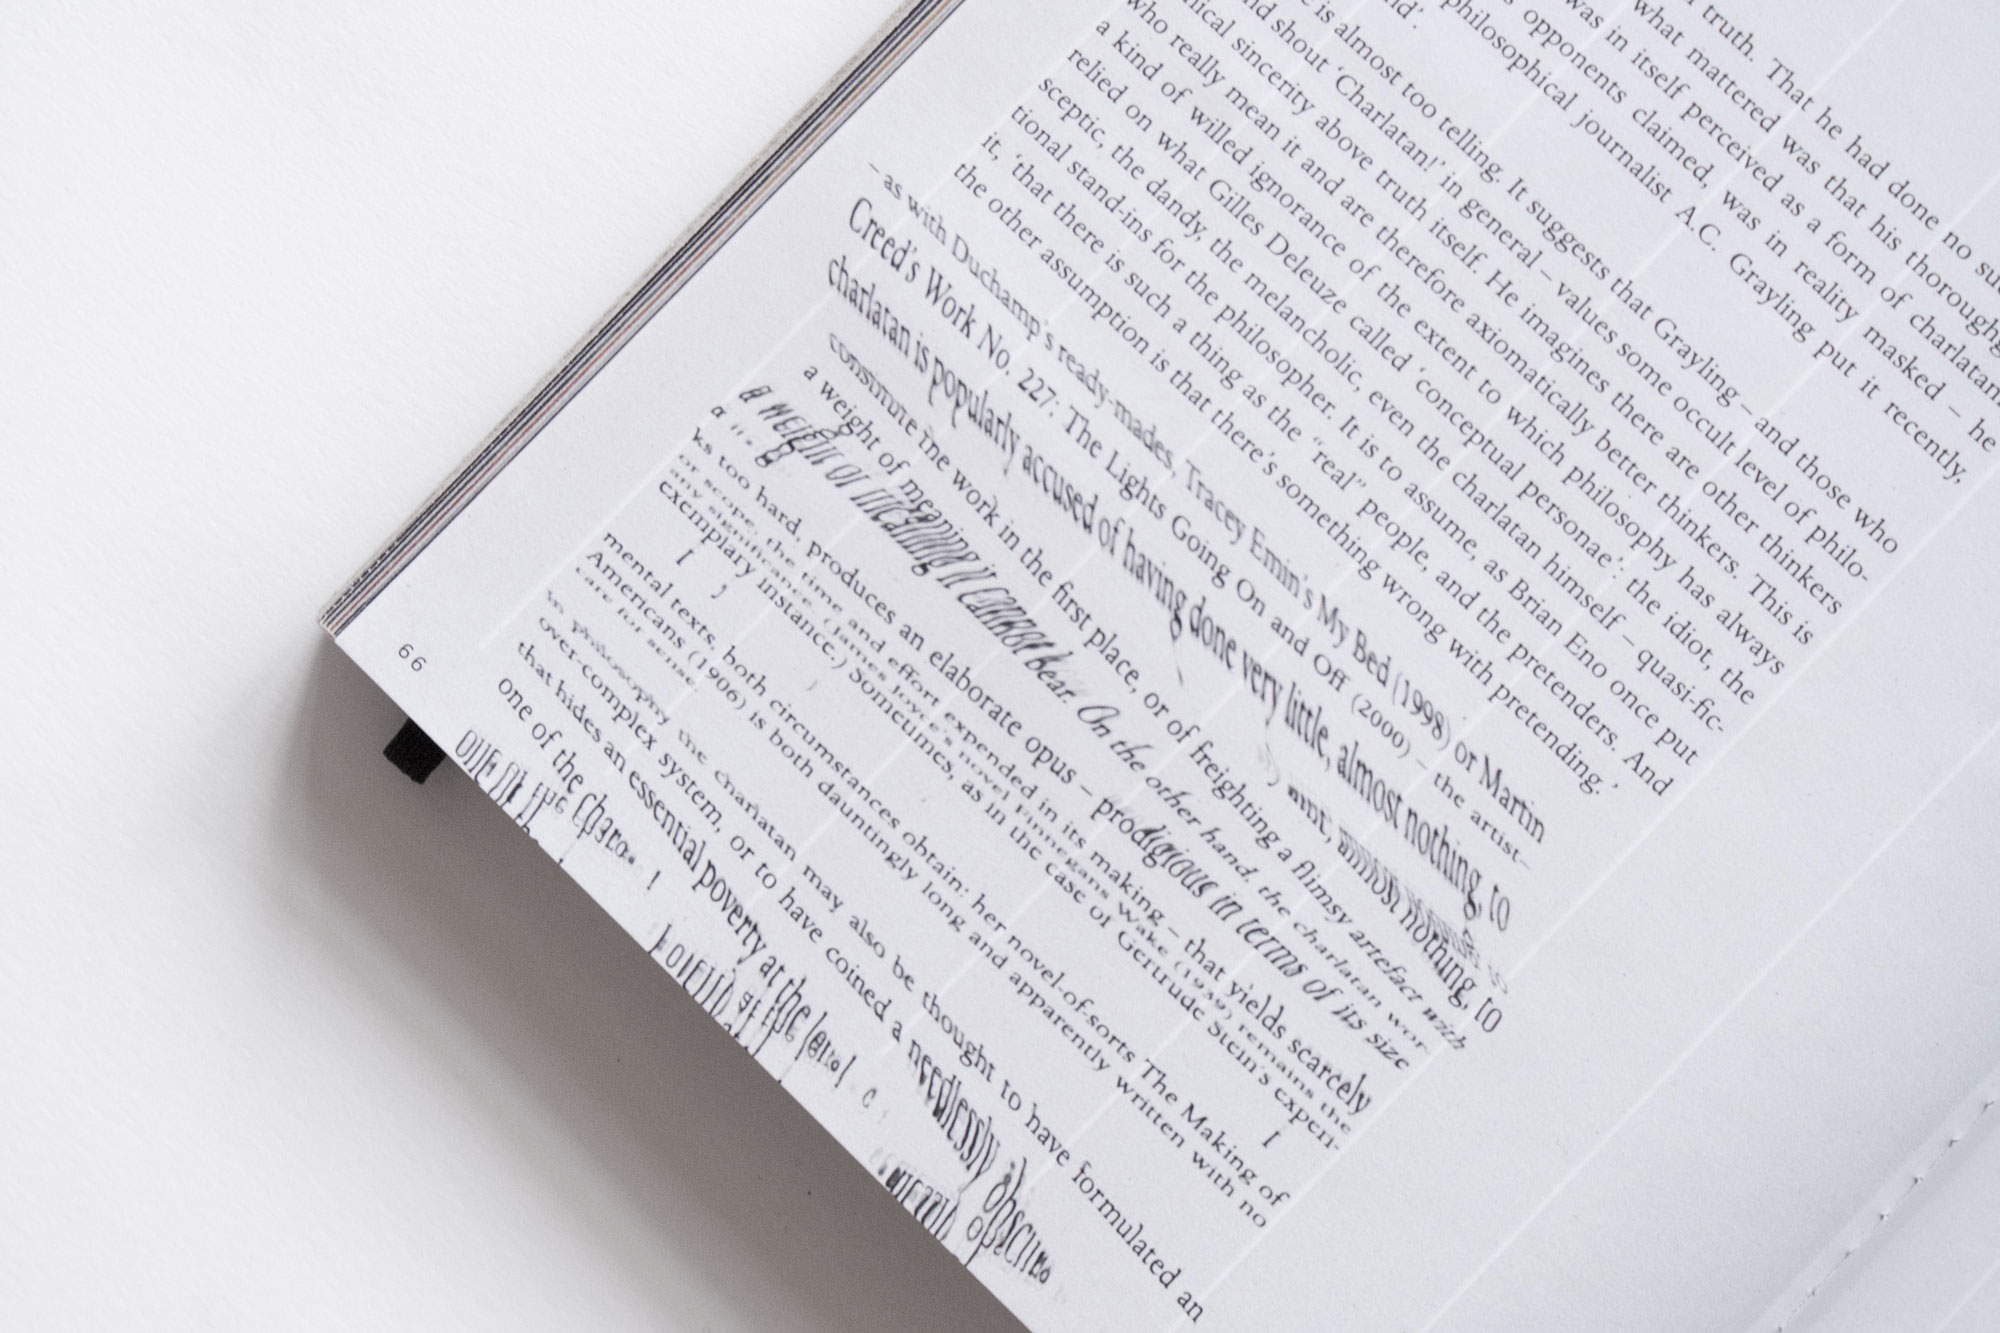 truth. That he had done no
what mattered was that his
was in itself perceived as a form of
opponents claimed, was in reality masked – he
philosophical journalist A.C. Grayling put it recently,
is almost too telling. It suggests that Grayling – and those who
shout ‘Charlatan!’ in general – values some occult level of philo-
sincerity above truth itself. He imagines there are other thinkers
who really mean it and are therefore axiomatically better thinkers. This is
a kind of willed ignorance of the extent to which philosophy has always
relied on what Gilles Deleuze called ‘conceptual personae’: the idiot, the
sceptic, the dandy, the melancholic, even the charlatan himself – quasi-fic-
tional stand-ins for the philosopher. It is to assume, as Brian Eno once put
it, ‘that there is such a thing as the “real” people, and the pretenders. And
the other assumption is that there’s something wrong with pretending.’
– as with Duchamp’s ready-mades, Tracey Emin’s My Bed (1998) or Martin
Creed’s Work No. 227: The Lights Going On and Off (2000) – the artist–
charlatan is popularly accused of having done very little, almost nothing, to
almost nothing, to
constitute the work in the first place, or of freighting a flimsy artefact with
a weight of meaning it cannot bear. On the other hand, the charlatan wor-
a weight of
ks too hard, produces an elaborate opus – prodigious in terms of its size
or scope, the time and effort expended in its making – that yields scarcely
any significance (James Joyce’s novel Finnegans Wake (1939) remains the
exemplary instance.) Sometimes, as in the case of Gertrude Stein’s experi-
mental texts, both circumstances obtain: her novel-of-sorts The Making of
Americans (1906) is both dauntingly long and apparently written with no
care for sense.
In philosophy the charlatan may also be thought to have formulated an
over-complex system, or to have coined a needlessly
that hides an essential poverty at the
one of the
66